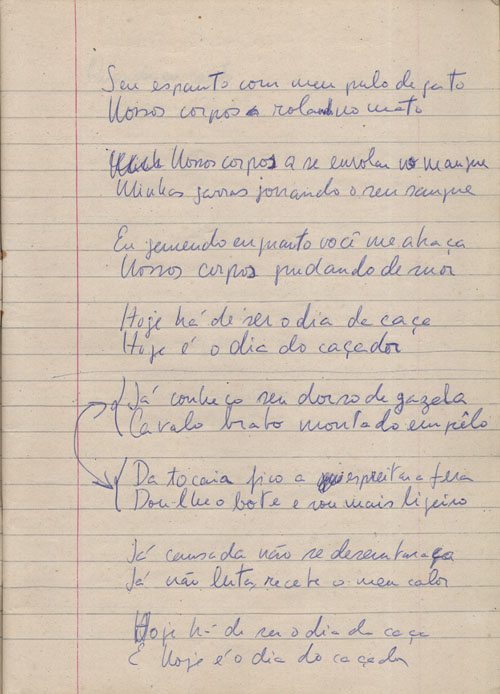 Seu espanto com meu pulo de gato
Nossos corpos a rolar no mato
Nossos corpos a se enrolar no mangue
Minhas garras jorrando o seu sangue
Eu gemendo enquanto você me abraça
Nossos corpos grudando de suor
Hoje há de ser o dia da caça
Hoje é o dia do caçador
Já conheço seu dorso de gazela
Cavalo brabo montado em pêlo
Da tocaia fico a espreitar a fera
Dou-lhe o bote e sou mais ligeiro
Já cansada não se desembaraça
Já não luta, recebe o meu calor
Hoje há de ser o dia da caça
E hoje é o dia do caçador